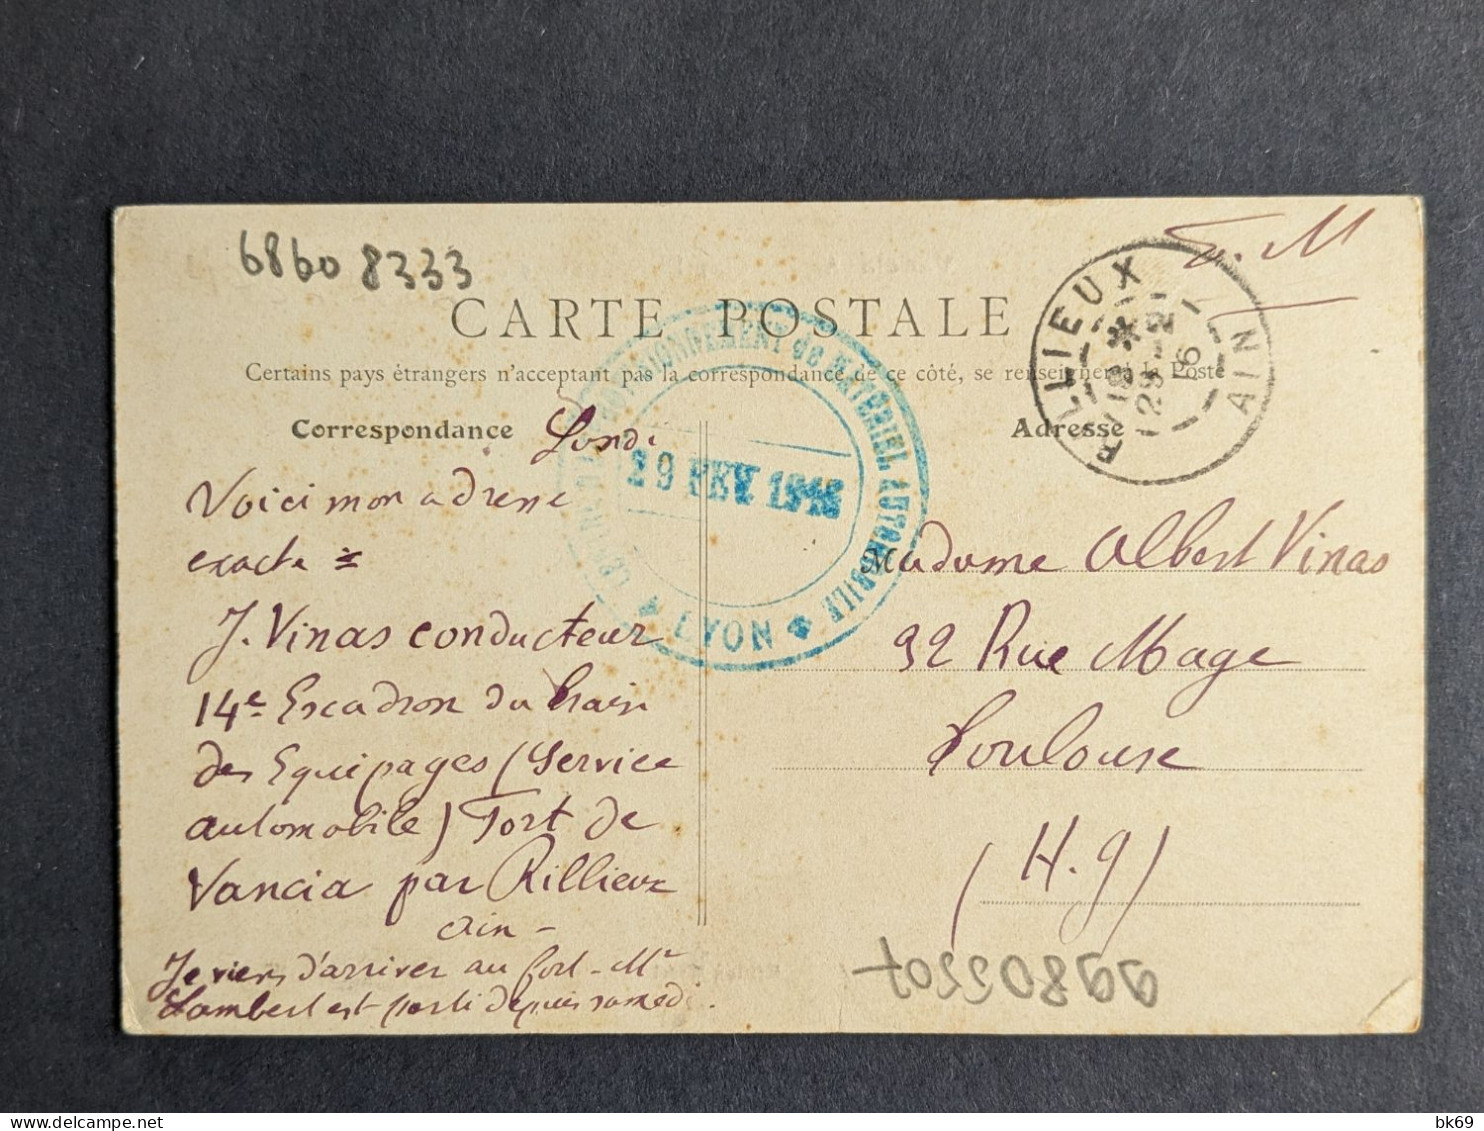 68608333
F. M
CARTE POSTALE
Certains pays étrangers n'acceptant pas la correspondance de ce côté, se renseigner à la Poste
RILLIEUX
18 *
29 - 2
16
AIN
Correspondance
Adresse
DE MATERIEL AUTOMOBILE
29 FEV 1916
* LYON *
Lundi
Voici mon adresse
exacte =
J. Vinas conducteur
14e Escadron du train
des Equipages (Service
automobile) Fort de
Vancia par Rillieux
Ain -
Je viens d'arriver au fort - Mr
Lambert est parti depuis samedi.
Madame Albert Vinas
92 Rue Mage
Toulouse
(H. g)
99805507
delcampe.net
bk69